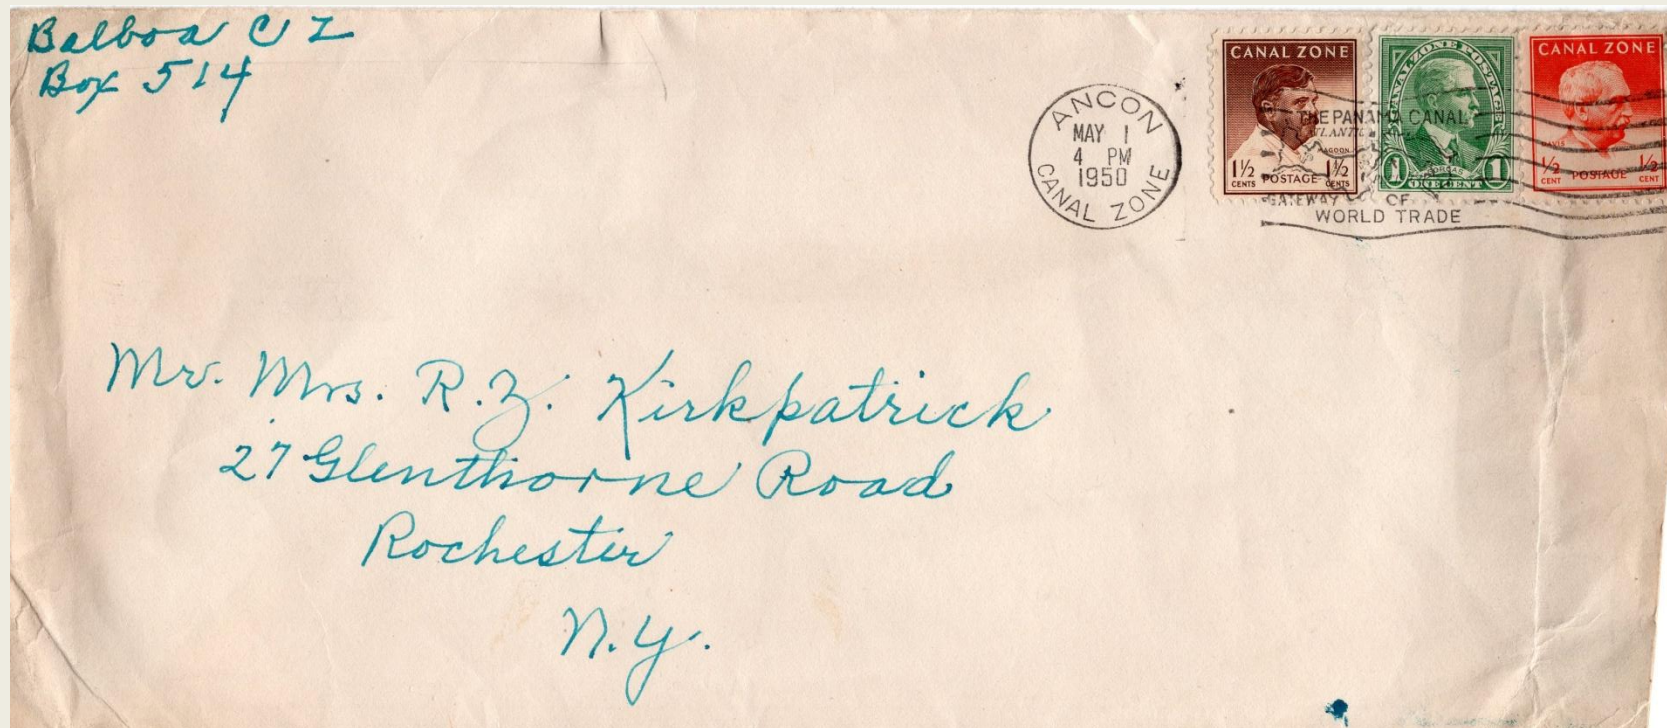 Balboa C Z
Box 514
ANCON
MAY 1
4 PM
1950
CANAL ZONE
CANAL ZONE
1½ CENTS POSTAGE 1½ CENTS
CANAL ZONE POSTAGE
GORGAS
1 ONE CENT 1
CANAL ZONE
DAVIS
½ CENT POSTAGE ½ CENT
THE PANAMA CANAL
ATLANTIC
GATEWAY OF
WORLD TRADE
Mr. Mrs. R.Z. Kirkpatrick
27 Glenthorne Road
Rochester
N.Y.